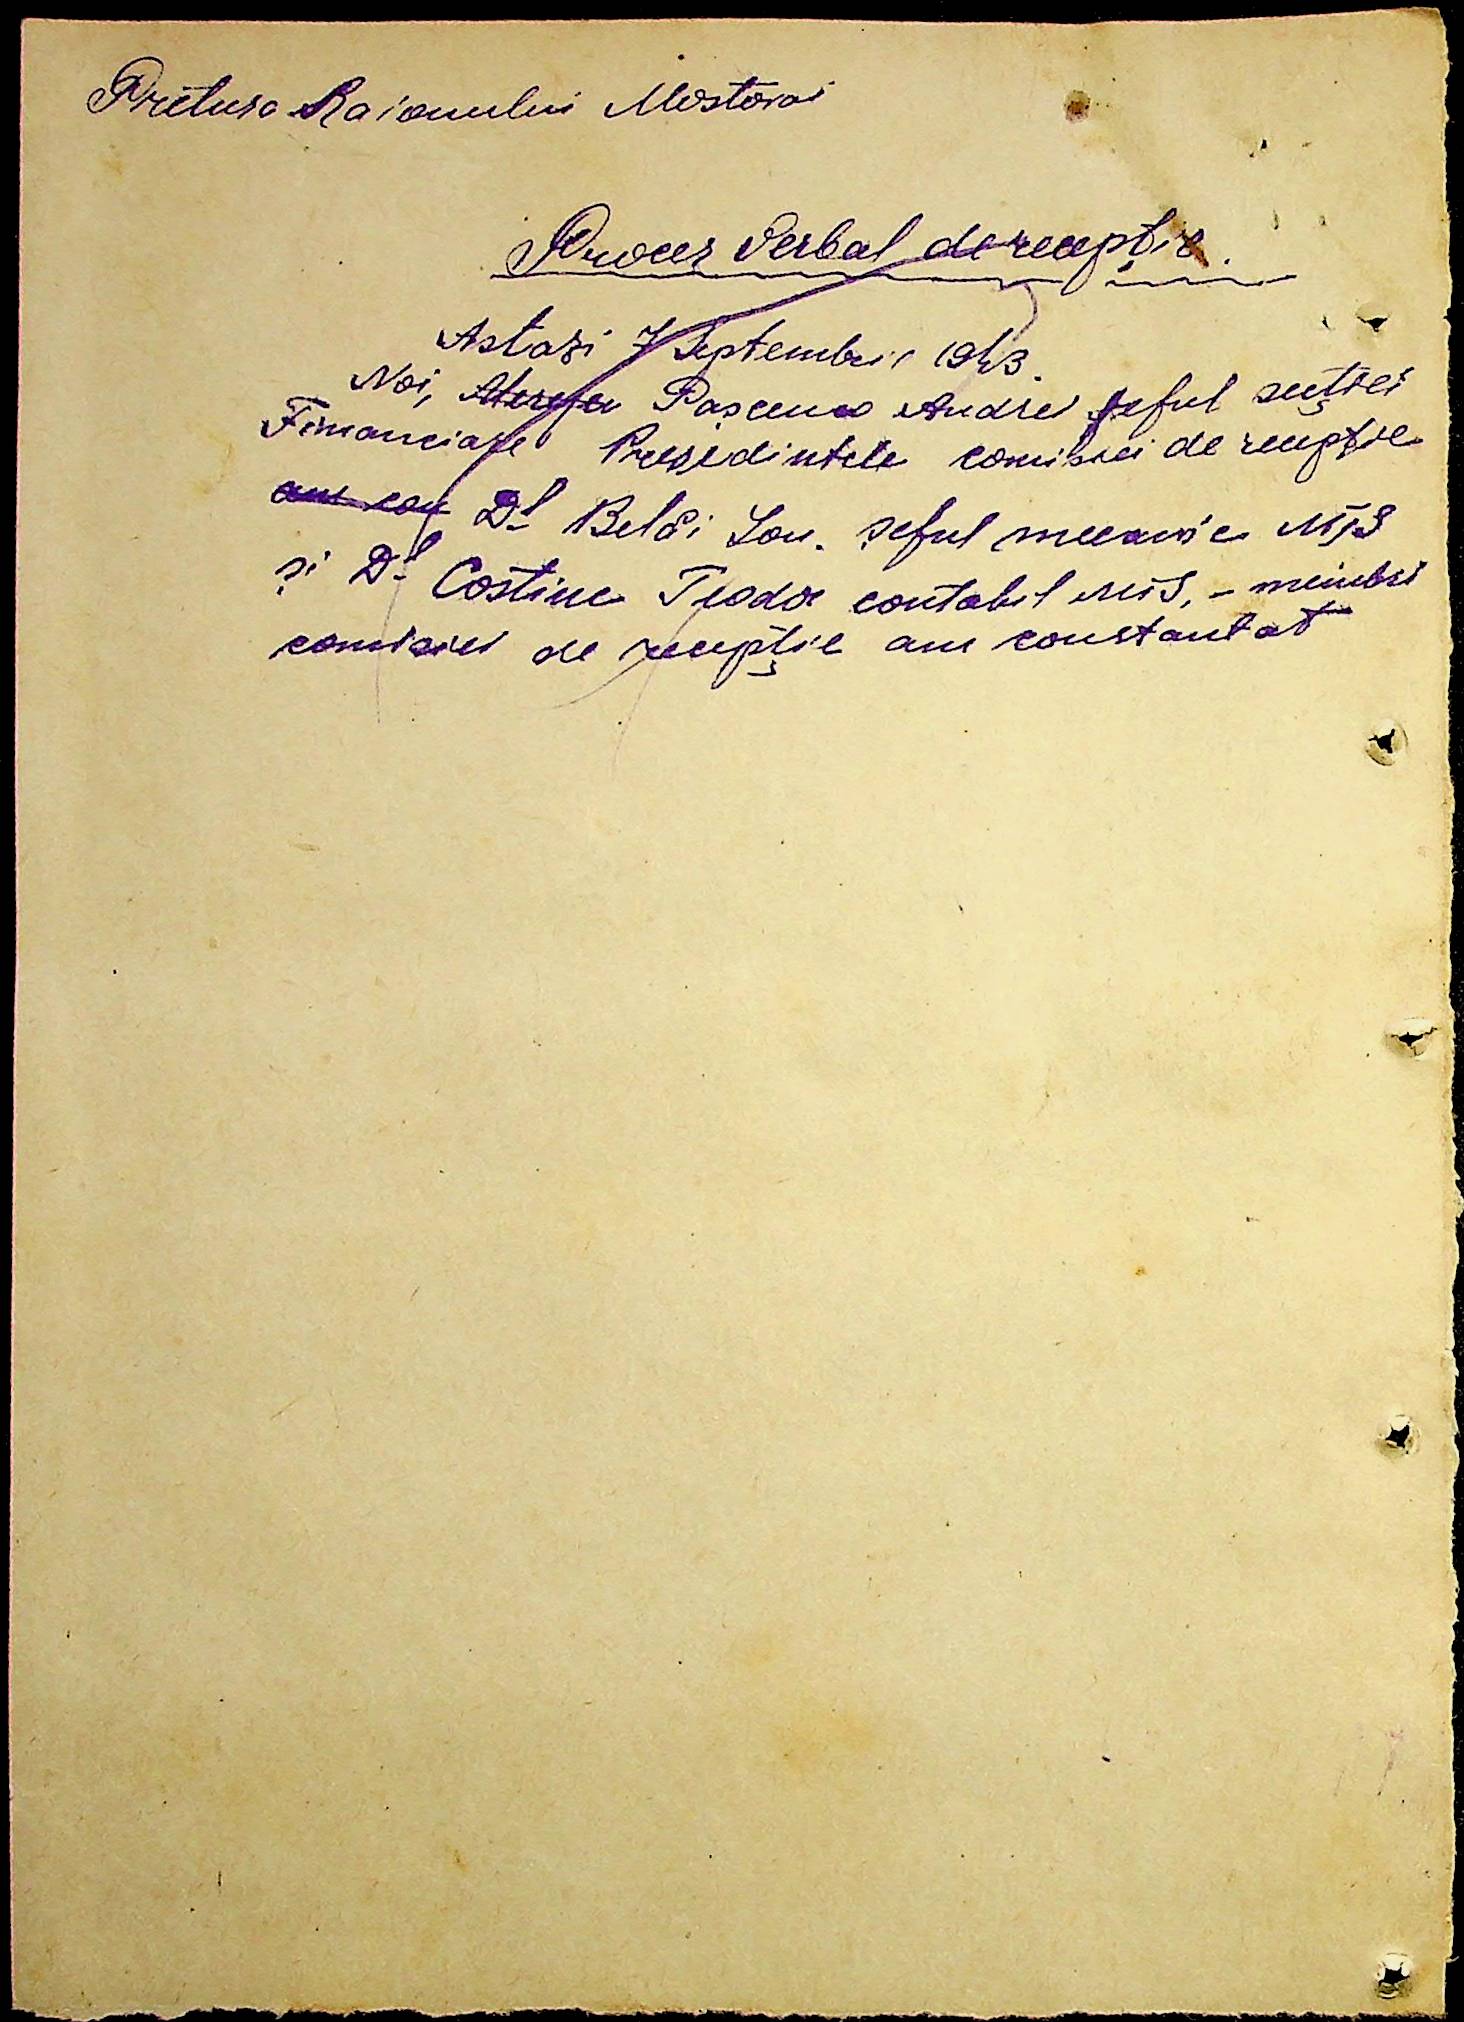 Pretura Raionului Mostovoi
Proces Verbal de recepție.
Astazi 7 Septembrie 1943.
Noi, Pașcenco Andrei șeful secției
Financiare Președintele comisiei de recepție
am con Dl Belâi Ion. șeful mecanic MTS
și Dl Costine Teodor contabil MTS, - membri
comisiei de recepție am constantat